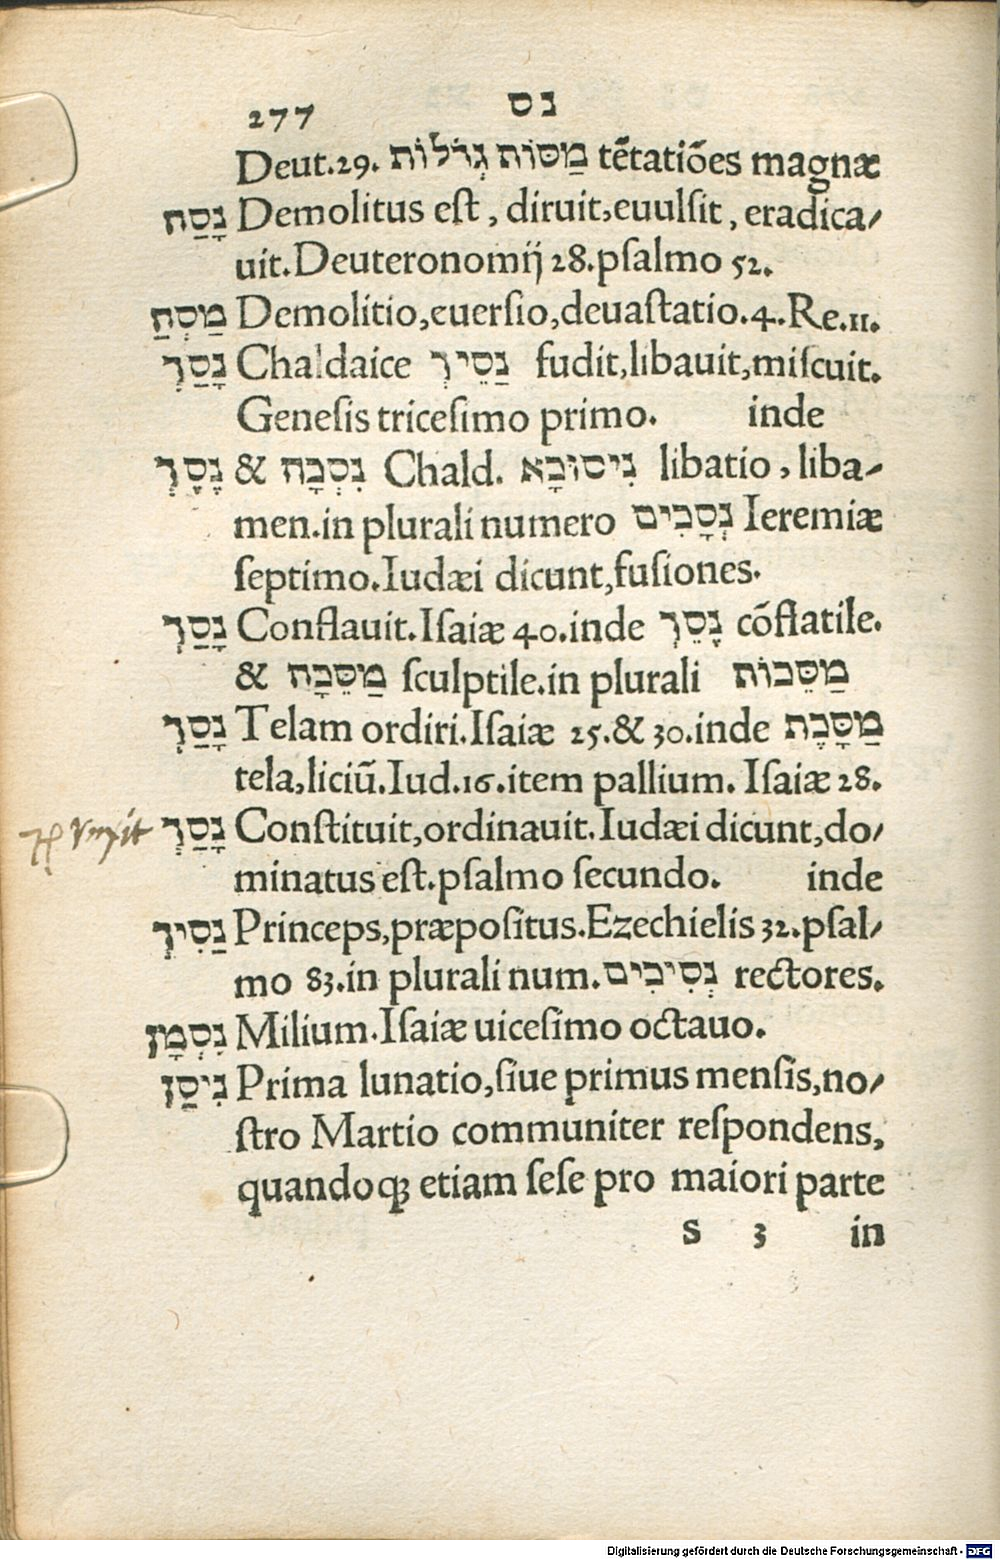 277 נס
Deut.29. מַסּוֹת גְּדֹלוֹת tētatiōes magnæ
נָסַח Demolitus eſt, diruit,euulſit, eradica/
uit.Deuteronomij 28.pſalmo 52.
מַסְחַ Demolitio,euerſio,deuaſtatio.4.Re.11.
נָסַךְ Chaldaice נַסֵיךְ fudit,libauit,miſcuit.
Geneſis triceſimo primo. inde
נֶסֶךְ & נִסְכָּה Chald. נִיסוּכָא libatio, liba-
men.in plurali numero נְסָכִים Ieremiæ
ſeptimo.Iudæi dicunt,fuſiones.
נָסַךְ Conflauit.Iſaiæ 40.inde נֶסֵךְ cōflatile.
& מַסֵּכָה ſculptile.in plurali מַסֵּכוֹת
נָסַךְ Telam ordiri.Iſaiæ 25.& 30.inde מַסָּכֶת
tela,liciū.Iud.16.item pallium. Iſaiæ 28.
Vnxit נָסַךְ Conſtituit,ordinauit.Iudæi dicunt,do/
minatus eſt.pſalmo ſecundo. inde
נַסִיךְ Princeps,præpoſitus.Ezechielis 32.pſal/
mo 83.in plurali num.נְסִיכִים rectores.
נִסְמָן Milium.Iſaiæ uiceſimo octauo.
נִיסַן Prima lunatio,ſiue primus menſis,no/
ſtro Martio communiter reſpondens,
quandoqꝫ etiam ſeſe pro maiori parte
S 3 in
Digitalisierung gefördert durch die Deutsche Forschungsgemeinschaft - DFG